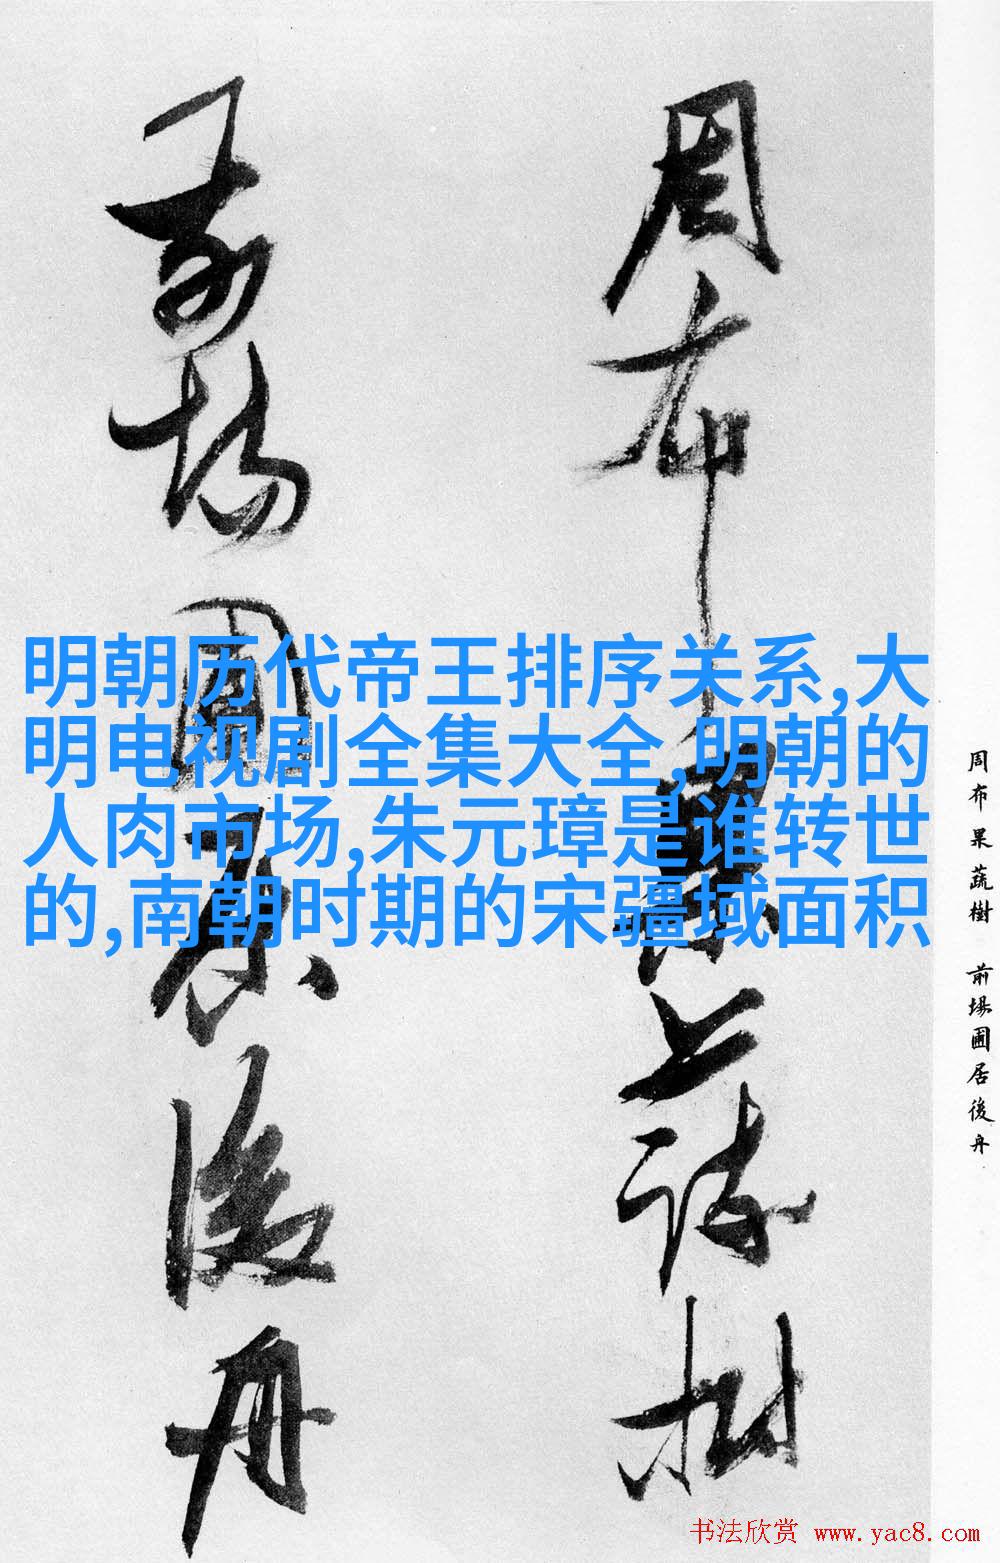 周布果蔬樹
前場圃居後舟
明朝历代帝王排序关系,大
明电视剧全集大全,明朝的
人肉市场,朱元璋是谁转世
的,南朝时期的宋疆域面积
周布果蔬樹 前場圃居後舟
书法欣赏 www.yac8.com